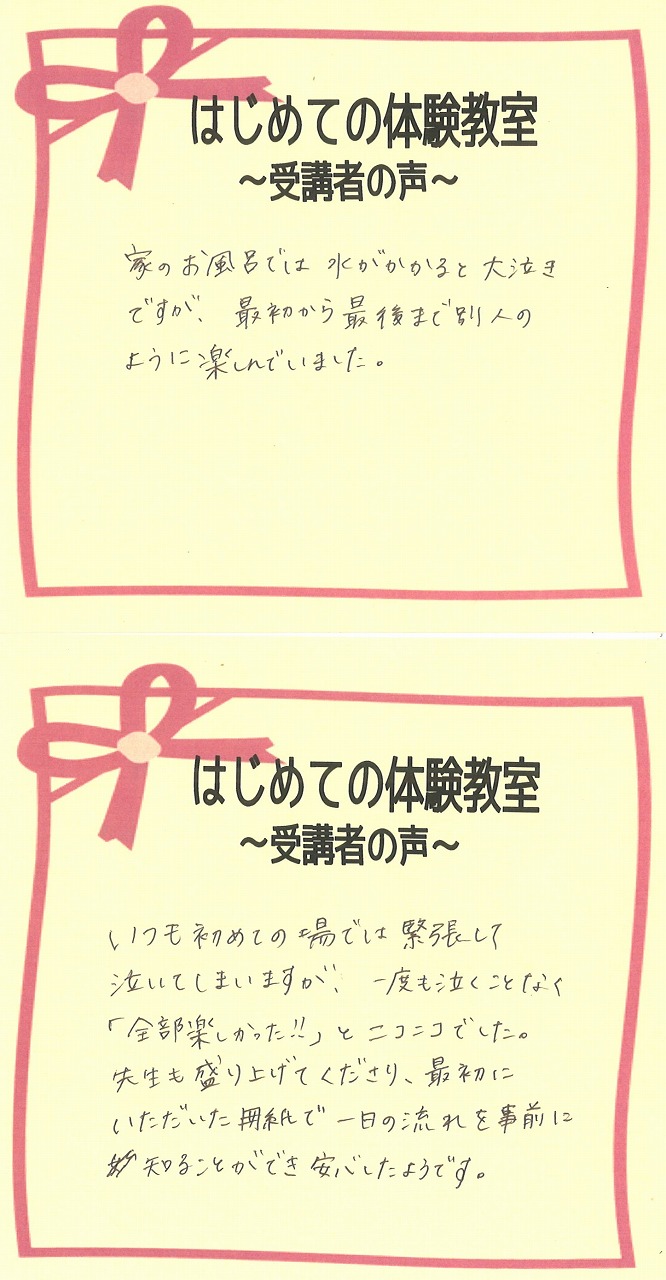 はじめての体験教室
～受講者の声～
家のお風呂では 水がかかると 大泣き
ですが、最初から最後まで別人の
ように楽しんでいました。
はじめての体験教室
～受講者の声～
いつも初めての場では緊張して
泣いてしまいますが、一度も泣くことなく
「全部楽しかった!!」と ニコニコでした。
先生も盛り上げてくださり、最初に
いただいた用紙で 一日の流れを事前に
知ることができ 安心したようです。